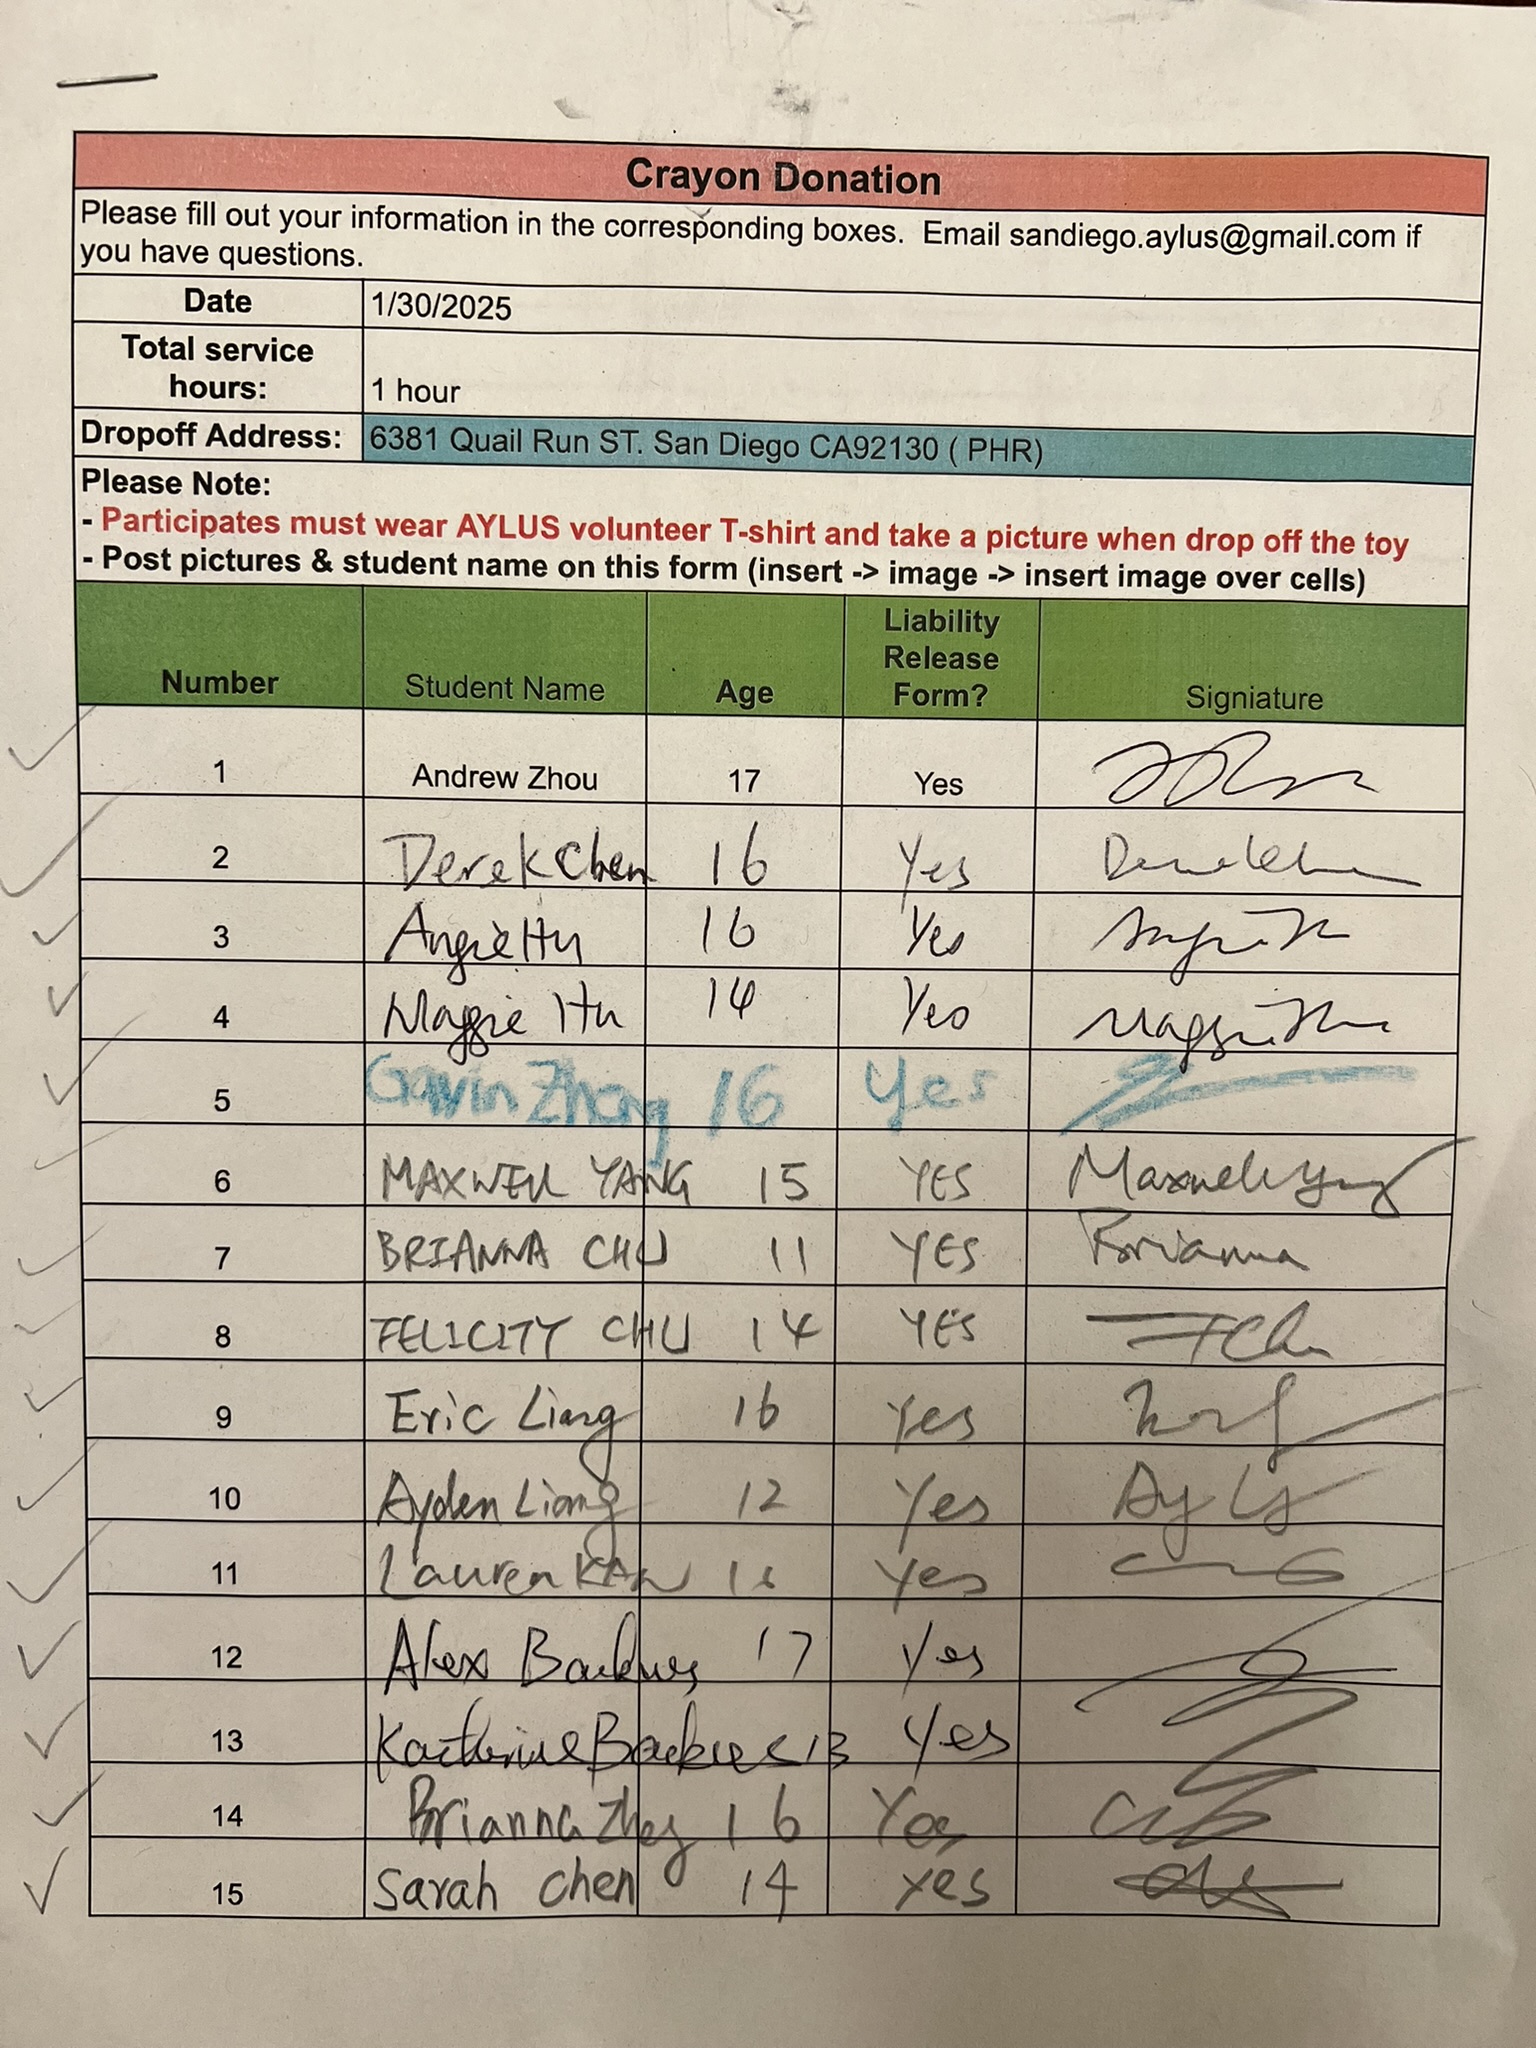 Crayon Donation
Please fill out your information in the corresponding boxes. Email sandiego.aylus@gmail.com if
you have questions.
Date 1/30/2025
Total service
hours: 1 hour
Dropoff Address: 6381 Quail Run ST. San Diego CA92130 ( PHR)
Please Note:
- Participates must wear AYLUS volunteer T-shirt and take a picture when drop off the toy
- Post pictures & student name on this form (insert -> image -> insert image over cells)
Number Student Name Age Liability Release Form? Signiature
1 Andrew Zhou 17 Yes
2 Derek Chen 16 Yes Derek Chen
3 Angie Hu 16 Yes Angie Hu
4 Maggie Hu 14 Yes Maggie Hu
5 Gavin Zhang 16 Yes
6 MAXWELL YANG 15 YES Maxwell Yang
7 BRIANNA CHU 11 YES Brianna
8 FELICITY CHU 14 YES FChu
9 Eric Liang 16 Yes
10 Ayden Liang 12 Yes Ay Lg
11 Lauren Kan Yes
12 Alex Backues 17 Yes
13 Katherine Backues 13 Yes
14 Brianna 16 Yes
15 Sarah Chen 14 Yes